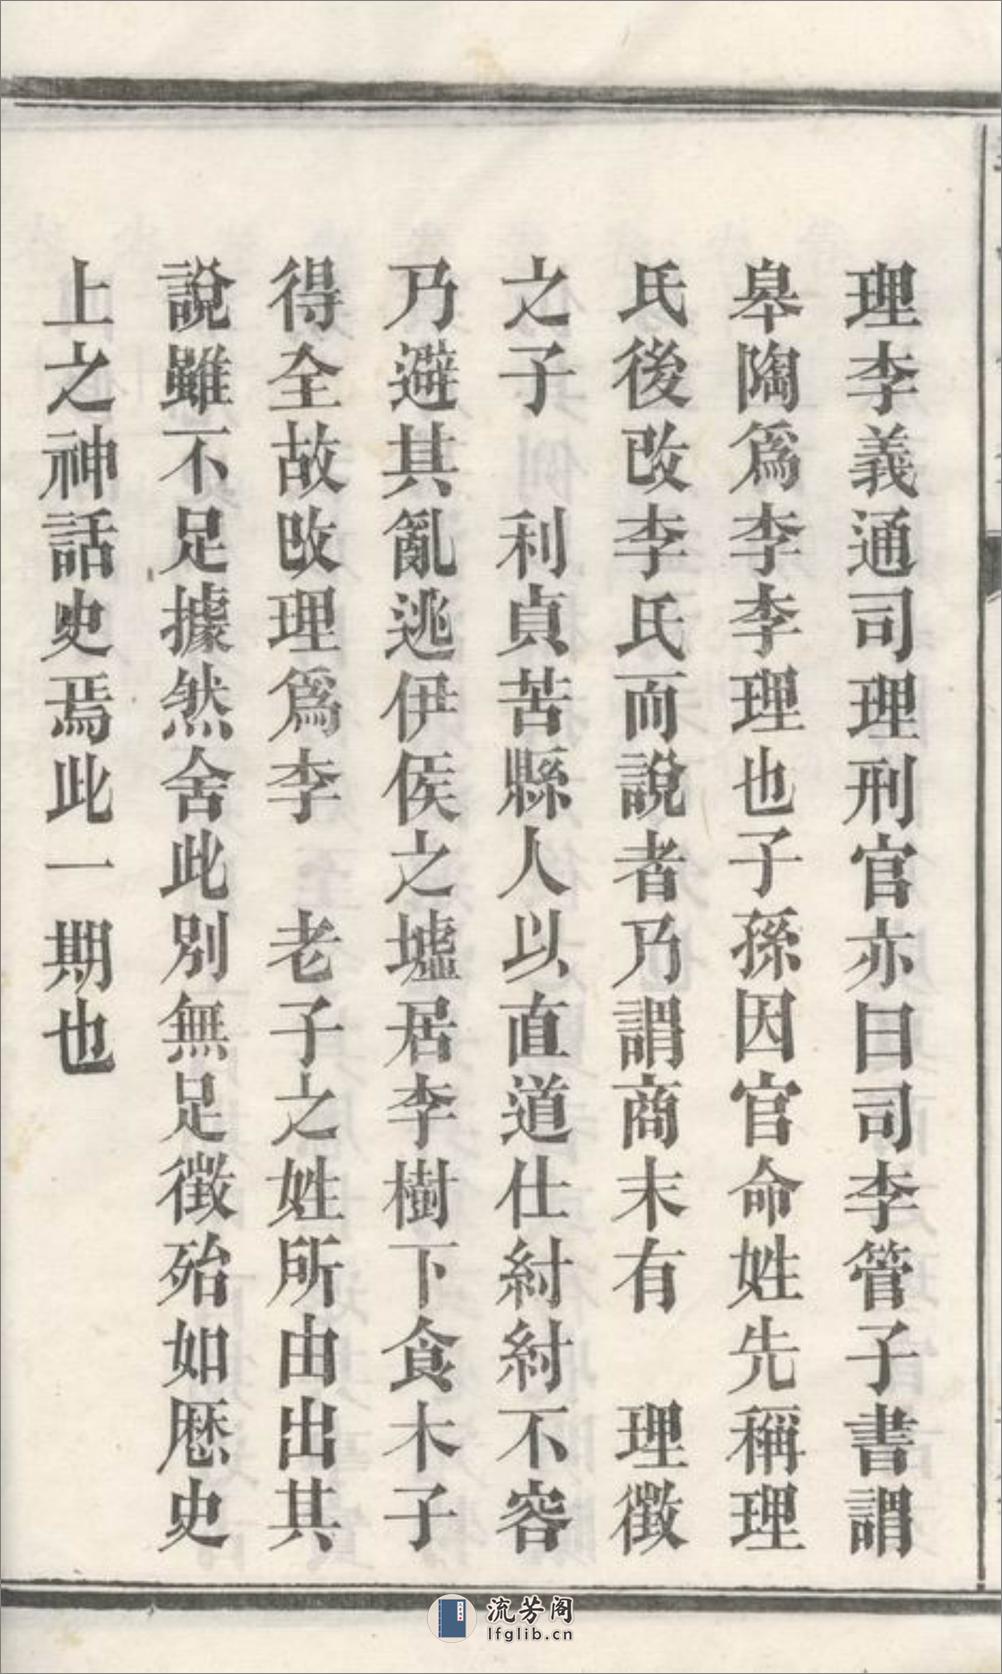 理李義通司理刑官亦曰司李管子書謂
皋陶爲李李理也子孫因官命姓先稱理
氏後改李氏而說者乃謂商末有　理徵
之子　利貞苦縣人以直道仕紂紂不容
乃避其亂逃伊侯之墟居李樹下食木子
得全故改理爲李　老子之姓所由出其
說雖不足據然舍此別無足徵殆如歷史
上之神話史焉此一期也
流芳阁
lfglib.cn